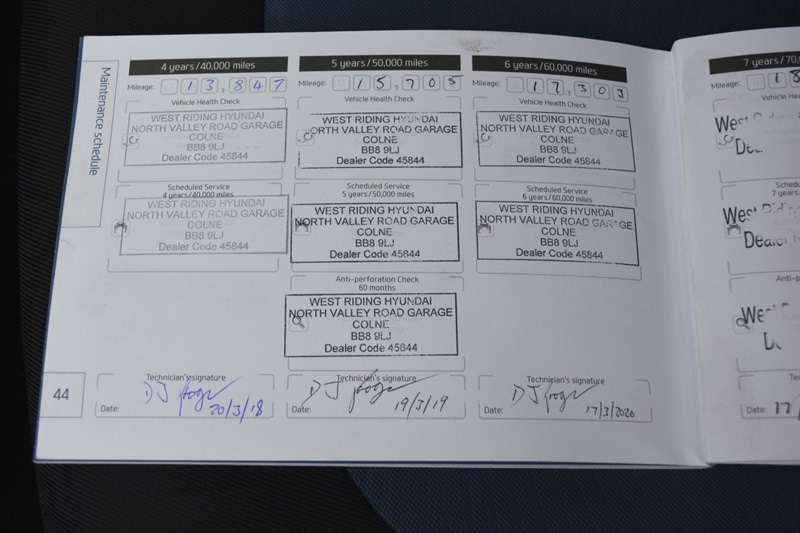 Maintenance schedule
4 years/40,000 miles
Mileage: 13,847
Vehicle Health Check
WEST RIDING HYUNDAI
NORTH VALLEY ROAD GARAGE
COLNE
BB8 9LJ
Dealer Code 45844
Scheduled Service
4 years/40,000 miles
WEST RIDING HYUNDAI
NORTH VALLEY ROAD GARAGE
COLNE
BB8 9LJ
Dealer Code 45844
Technician's signature
Date: 20/3/18
5 years/50,000 miles
Mileage: 15,705
Vehicle Health Check
WEST RIDING HYUNDAI
NORTH VALLEY ROAD GARAGE
COLNE
BB8 9LJ
Dealer Code 45844
Scheduled Service
5 years/50,000 miles
WEST RIDING HYUNDAI
NORTH VALLEY ROAD GARAGE
COLNE
BB8 9LJ
Dealer Code 45844
Anti-perforation Check
60 months
WEST RIDING HYUNDAI
NORTH VALLEY ROAD GARAGE
COLNE
BB8 9LJ
Dealer Code 45844
Technician's signature
Date: 19/3/19
6 years/60,000 miles
Mileage: 17,303
Vehicle Health Check
WEST RIDING HYUNDAI
NORTH VALLEY ROAD GARAGE
COLNE
BB8 9LJ
Dealer Code 45844
Scheduled Service
6 years/60,000 miles
WEST RIDING HYUNDAI
NORTH VALLEY ROAD GARAGE
COLNE
BB8 9LJ
Dealer Code 45844
Technician's signature
Date: 17/3/2020
44
7 years/70,
Mileage: 18
Vehicle He
West
7 years
West
Anti-p
Date: 17/